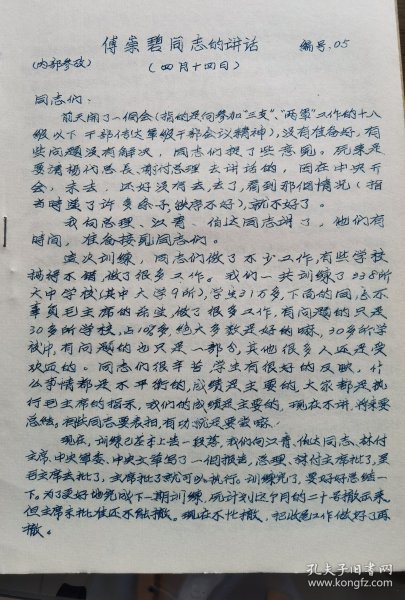 傅崇碧同志的讲话 编号:05
(内部参考) (四月十四日)
同志们:
前天开了一个会(指的是向参加“三支”、“两军”工作的十八
级以下干部传达军级干部会议精神),没有准备好,有
些问题没有解决,同志们提了些意见。原来是
要请杨代总长、萧付总理去讲话的,因在中央开
会,未去,还好没有去去了,看到那个情况(指
当时递了许多条子,秩序不好),就不好了。
我向总理、江青、伯达同志讲了,他们有
时间,准备接见同志们。
这次训练,同志们做了不少工作,有些学校
搞得不错,做了很多工作。我们一共训练了238所
大中学校(其中大学9所),学生31万多,下面的同志不
辜负毛主席的希望,做了很多工作,有问题的只是
30多所学校,占10%多,绝大多数是好的嘛,30多所学
校中,有问题的也只是一部分,其他很多人还是受
欢迎的。同志们很辛苦,学生有很好的反映,什
么事情都是不平衡的,成绩是主要的,大家都是执
行毛主席的指示,我们的成绩是主要的,现在不讲,将来要
总结,有些同志要表扬,有功就是要鼓嘛。
现在,训练已基本上告一段落,我们向江青、伯达同志、林付
主席、中央军委、中央文革写了一个报告,总理、林付主席批了,呈
毛主席去批了,主席批了就可以执行。训练完了,要好好总结一
下。为了更好地完成下一期训练,原计划这个月的二十号撤出来,
但主席未批准还不能撤。现在不忙撤,把收尾工作做好了再
撤。
孔夫子旧书网
www.kongfz.com